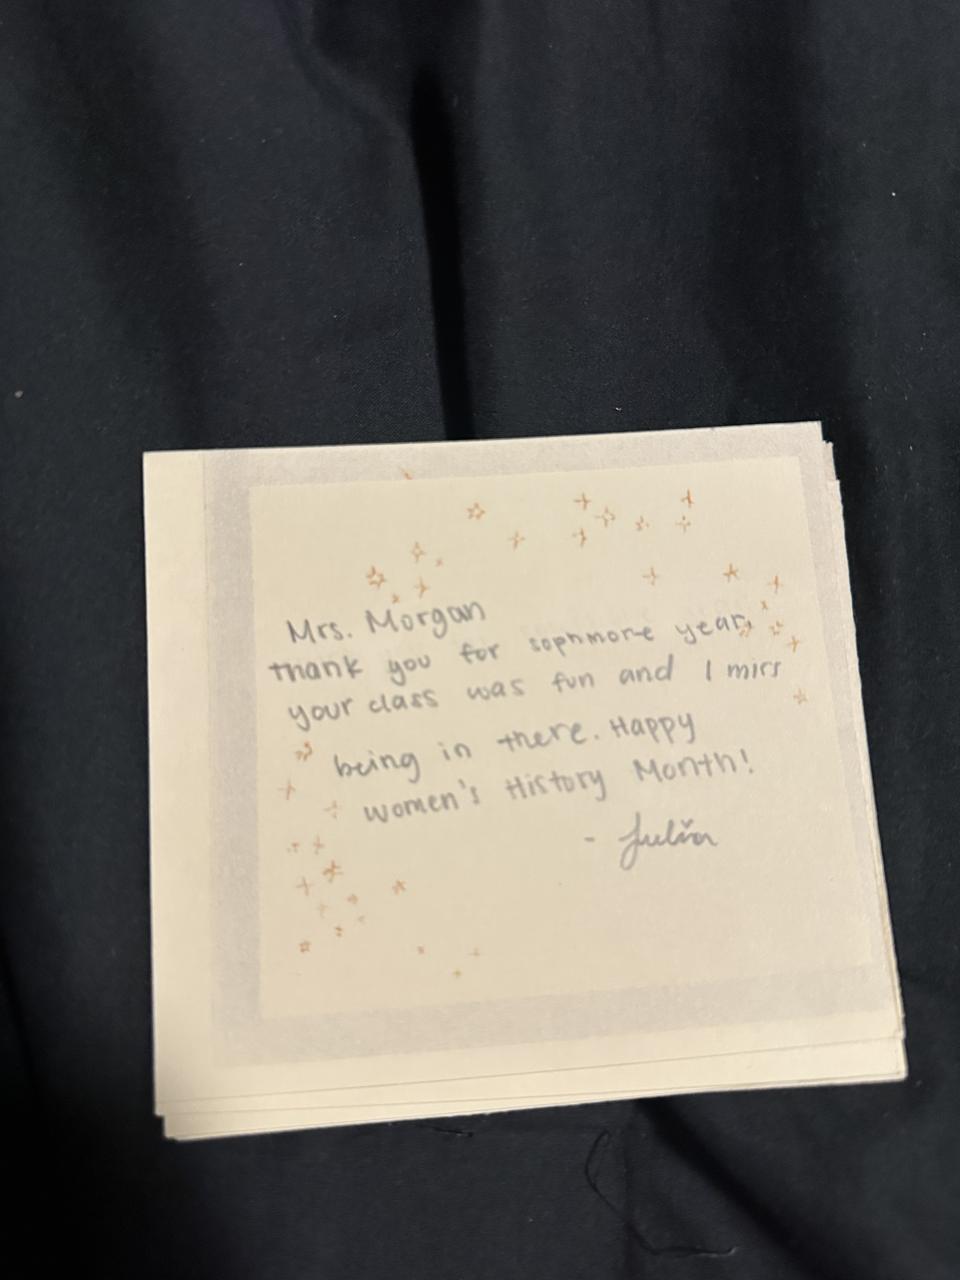 Mrs. Morgan
thank you for sophmore year,
your class was fun and I miss
being in there. Happy
Women's History Month!
- Julia